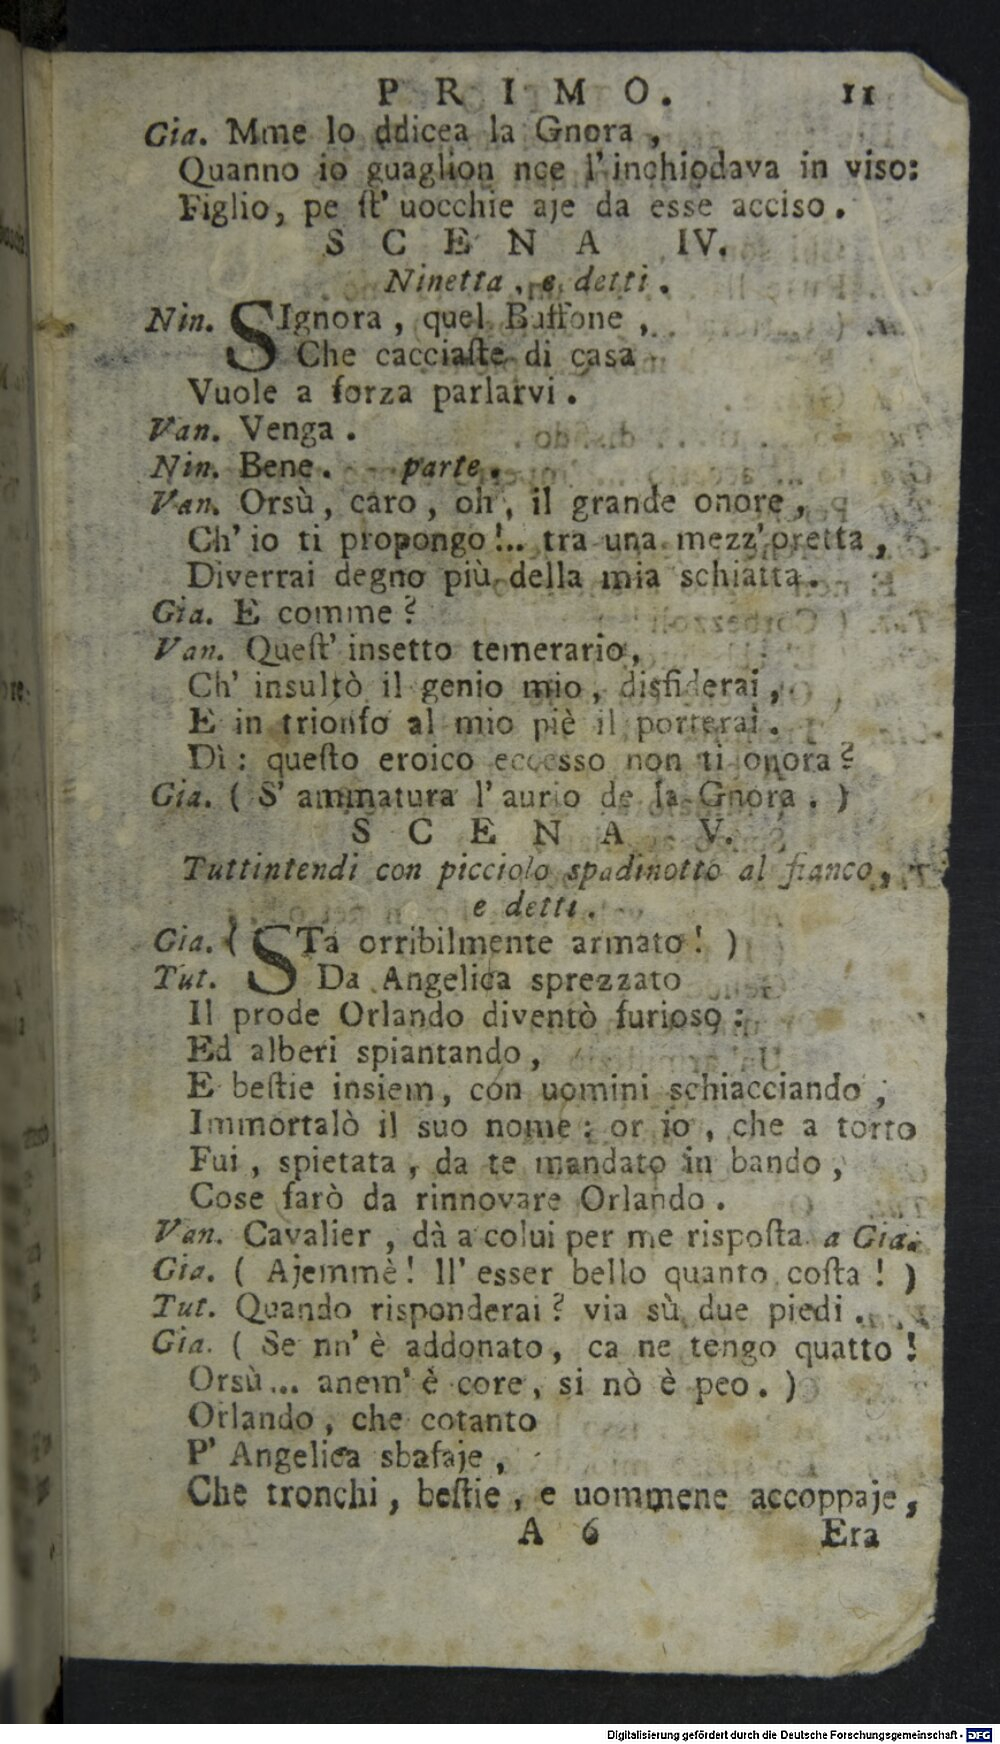 PRIMO. 11
Gia. Mme lo ddicea la Gnora ,
Quanno io guaglion nce l' inchiodava in viso:
Figlio, pe ſt' uocchie aje da esse acciso .
SCENA IV.
Ninetta , e detti .
Nin. SIgnora , quel Buffone ,
Che cacciaſte di casa
Vuole a forza parlarvi .
Van. Venga .
Nin. Bene . parte .
Van. Orsù , caro , oh , il grande onore ,
Ch' io ti propongo !... tra una mezz' oretta ,
Diverrai degno più della mia schiatta .
Gia. E comme ?
Van. Queſt' insetto temerario ,
Ch' insultò il genio mio , disfiderai ,
E in trionfo al mio piè il porterai .
Dì : queſto eroico eccesso non ti onora ?
Gia. ( S' ammatura l' aurio de la Gnora . )
SCENA V.
Tuttintendi con picciolo spadinotto al fianco ,
e detti .
Gia. ( STa orribilmente armato ! )
Tut. Da Angelica sprezzato
Il prode Orlando diventò furioso :
Ed alberi spiantando ,
E beſtie insiem , con uomini schiacciando ,
Immortalò il suo nome : or io , che a torto
Fui , spietata , da te mandato in bando ,
Cose farò da rinnovare Orlando .
Van. Cavalier , dà a colui per me risposta . a Gia.
Gia. ( Ajemmè ! ll' esser bello quanto coſta ! )
Tut. Quando risponderai ? via sù due piedi .
Gia. ( Se nn' è addonato , ca ne tengo quatto !
Orsù ... anem' è core , si nò è peo . )
Orlando , che cotanto
P' Angelica sbafaje ,
Che tronchi , beſtie , e uommene accoppaje ,
A 6 Era
Digitalisierung gefördert durch die Deutsche Forschungsgemeinschaft - DFG